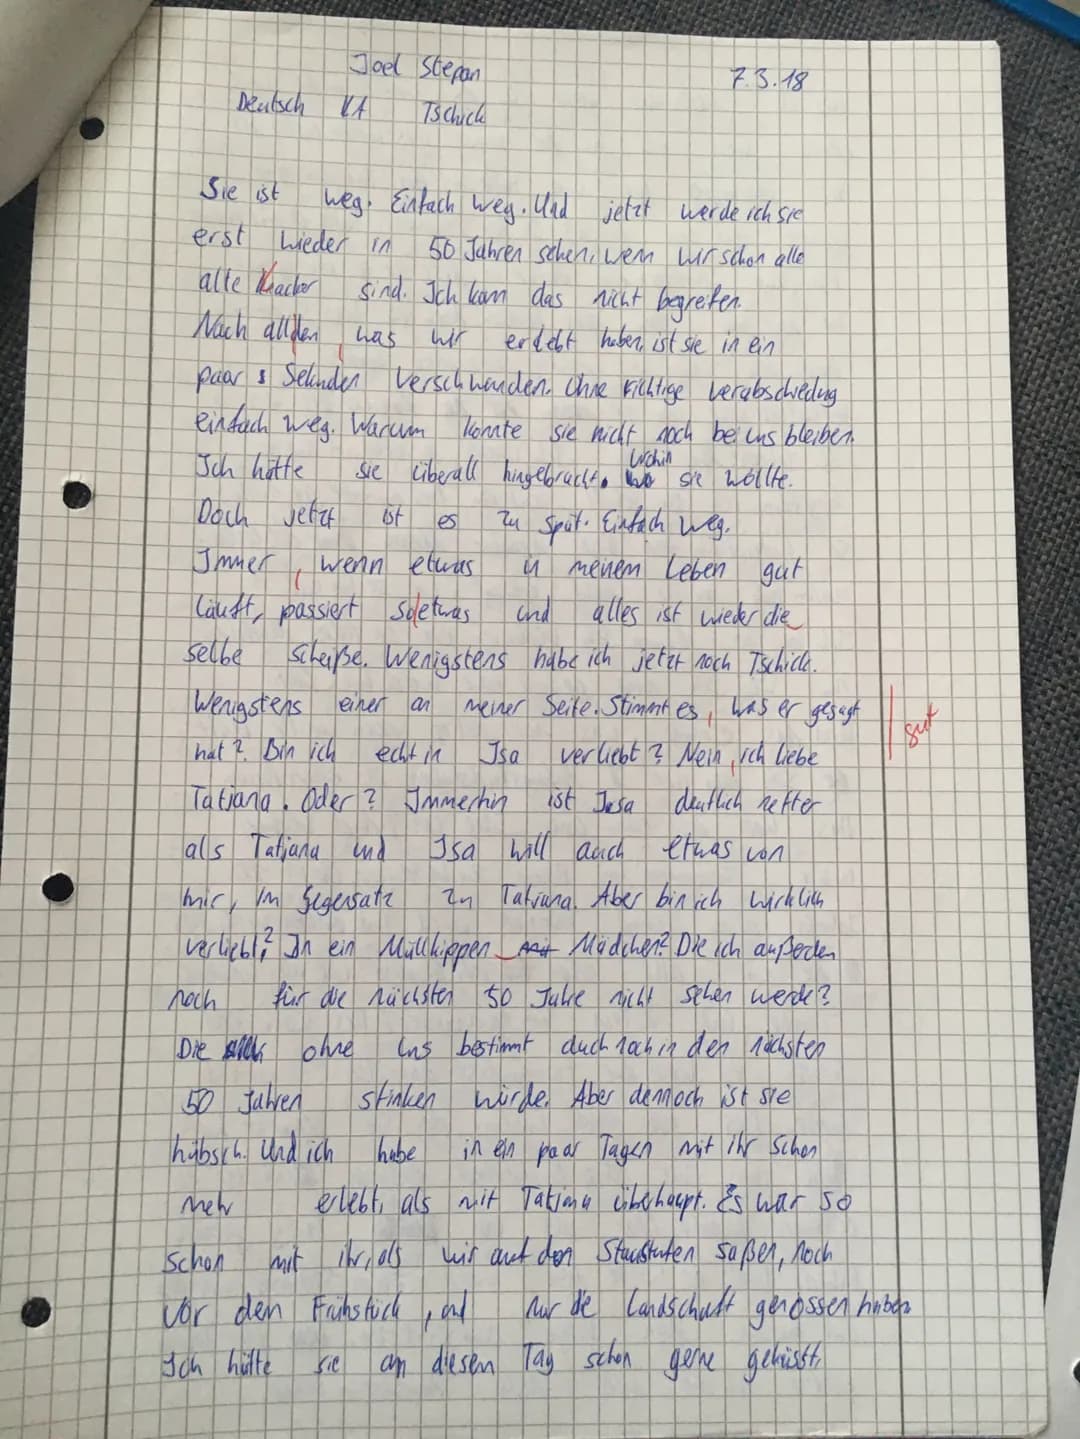 Joel Stepan 7.3.18
Deutsch KA Tschick
Sie ist weg. Einfach weg. Und jetzt werde ich sie
erst wieder in 50 Jahren sehen, wenn wir schon alle
alte Knacker sind. Ich kann das nicht begreifen.
Nach allden, was wir erlebt haben, ist sie in ein
paar Sekunden verschwunden. Ohne richtige verabschiedung
einfach weg. Warum konnte sie nicht noch bei uns bleiben.
Ich hätte sie überall hingebracht. wohin sie wollte.
Doch jetzt ist es zu spät. Einfach weg.
Immer, wenn etwas in meinem Leben gut
läuft, passiert soetwas und alles ist wieder die
selbe scheiße. Wenigstens habe ich jetzt noch Tschick.
Wenigstens einer an meiner Seite. Stimmt es, was er gesagt
gut
hat? Bin ich echt in Isa verliebt? Nein, ich liebe
Tatjana. Oder? Immerhin ist Isa deutlich netter
als Tatjana und Isa will auch etwas von
mir, im Gegensatz zu Tatjana. Aber bin ich wirklich
verliebt? In ein Müllkippen Mädchen? Die ich außerden
noch für die nächsten 50 Jahre nicht sehen werde?
Die ohne uns bestimmt auch noch in den nächsten
50 Jahren stinken würde. Aber dennoch ist sie
hübsch. Und ich habe in ein paar Tagen mit ihr schon
mehr erlebt, als mit Tatjana überhaupt. Es war so
schön mit ihr, als wir auf den Staustufen saßen, noch
vor dem Frühstück, und nur die Landschaft genossen haben
Ich hätte sie an diesem Tag schon gerne geküsst,